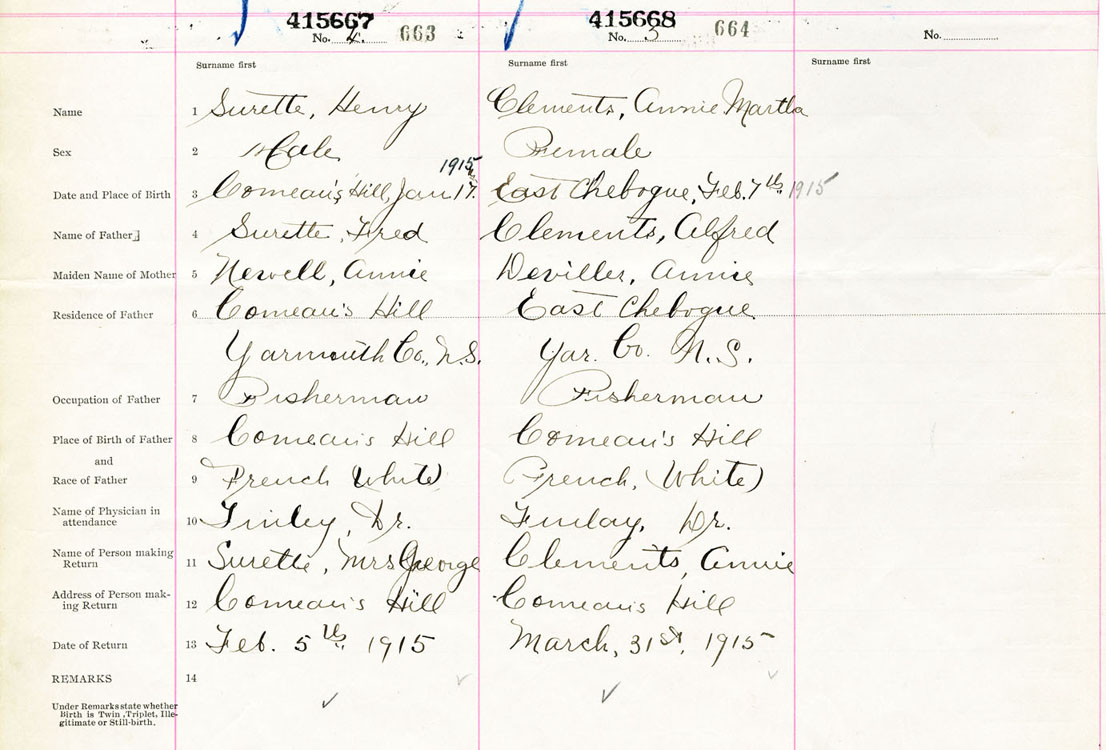 415667 415668
No. 4. 663 No. 3 664 No.
Surname first Surname first Surname first
Name 1 Surette, Henry Clements, Annie Martha
Sex 2 Male Female
1915
Date and Place of Birth 3 Comeau's Hill, Jan. 17. East Chebogue, Feb. 7th 1915
Name of Father 4 Surette, Fred Clements, Alfred
Maiden Name of Mother 5 Newell, Annie Deviller, Annie
Residence of Father 6 Comeau's Hill East Chebogue
Yarmouth Co., N.S. Yar. Co. N.S.
Occupation of Father 7 Fisherman Fisherman
Place of Birth of Father 8 Comeau's Hill Comeau's Hill
and
Race of Father 9 French White French, (White)
Name of Physician in
attendance 10 Finley, Dr. Finlay, Dr.
Name of Person making
Return 11 Surette, Mrs George Clements, Annie
Address of Person mak-
ing Return 12 Comeau's Hill Comeau's Hill
Date of Return 13 Feb. 5th, 1915 March, 31st, 1915
REMARKS 14
Under Remarks state whether
Birth is Twin, Triplet, Ille-
gitimate or Still-birth.